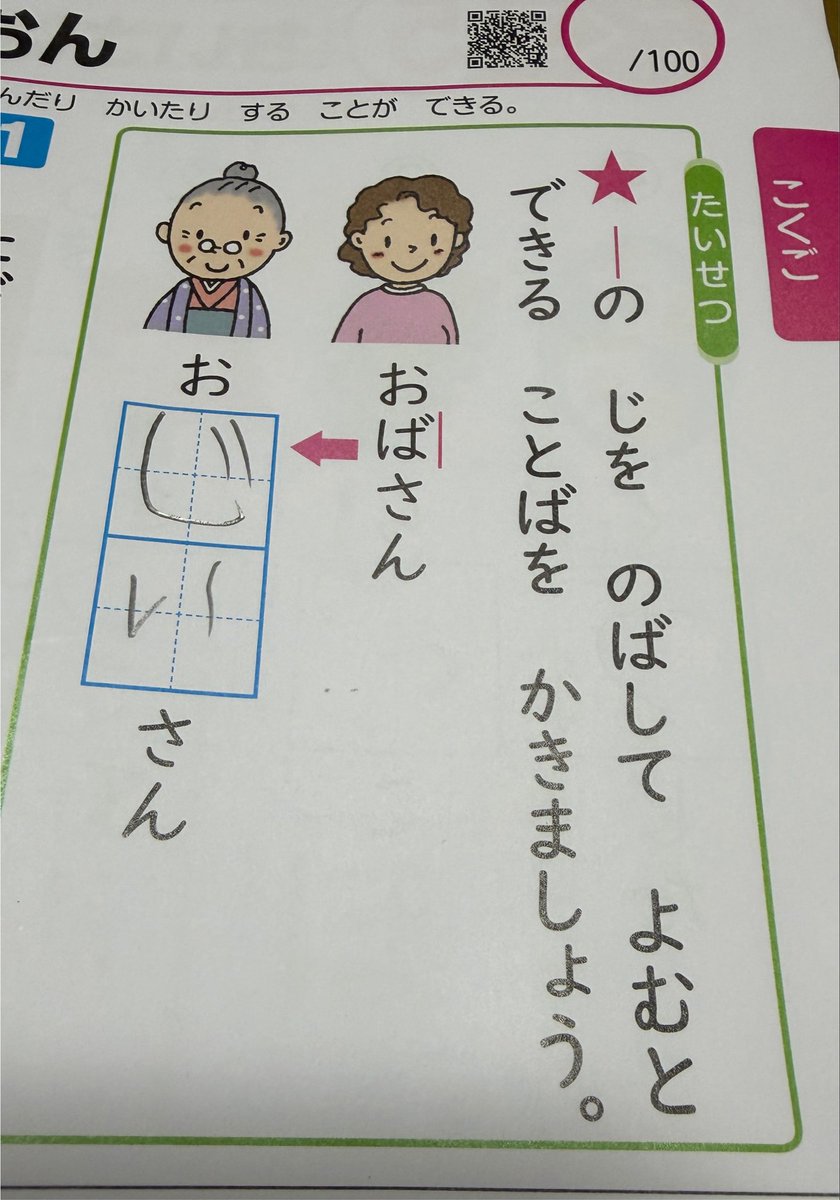 おん
/100
んだり かいたり する ことが できる。
1
こくご
たいせつ
★―の じを のばして よむと
できる ことばを かきましょう。
おばさん
おじいさん